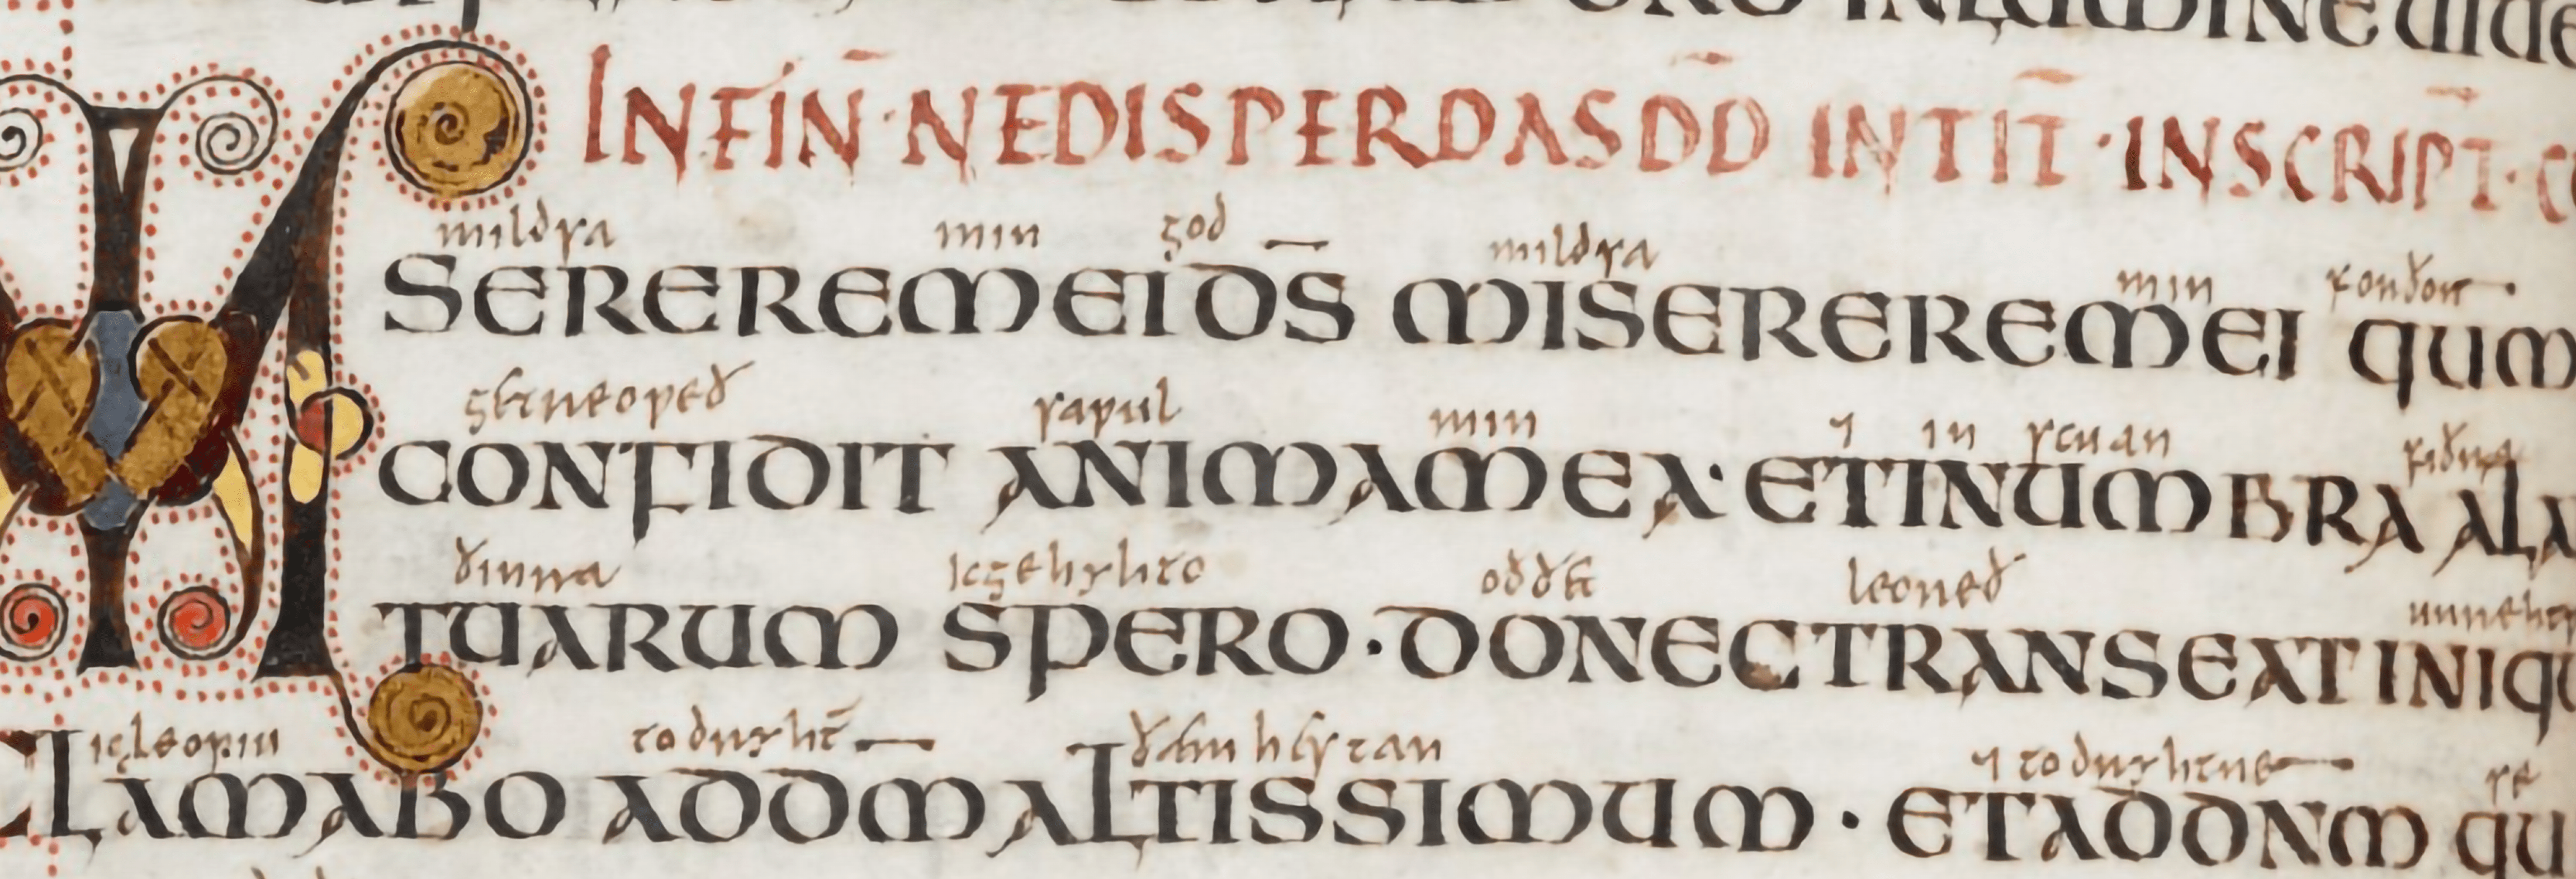 INLUMINE UIDE
INFIN̄ · NEDISPERDAS DD̄ INTIT̄ · INSCRIPT̄ ·
mildsa min god mildsa min forðon
MISEREREMEI D̄S MISEREREMEI QUM
getreoweð sawul min ⁊ in scuan fiðra
CONFIDIT ANIMAMEA · ETINUMBRA ALA
ðinra icgehyhto oððæt leoreð
TUARUM SPERO · DONECTRANSEATINIQU
icgleopiu todryht̄ ðæm hestan ⁊ todryhtne se
CLAMABO ADDM̄ ALTISSIMUM · ETADDNM QU